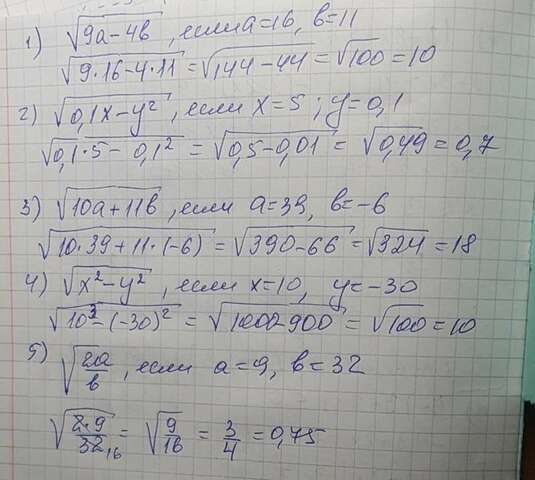 1) √(9a-4b), если a=16, b=11
√(9·16-4·11) = √(144-44) = √100 = 10
2) √(0,1x-y²), если x=5; y=0,1
√(0,1·5-0,1²) = √(0,5-0,01) = √0,49 = 0,7
3) √(10a+11b), если a=39, b=-6
√(10·39+11·(-6)) = √(390-66) = √324 = 18
4) √(x²-y²), если x=10, y=-30
√(10³-(-30)²) = √(1000-900) = √100 = 10
5) √(2a/b), если a=9, b=32
√(2·9/32₁₆) = √(9/16) = 3/4 = 0,75